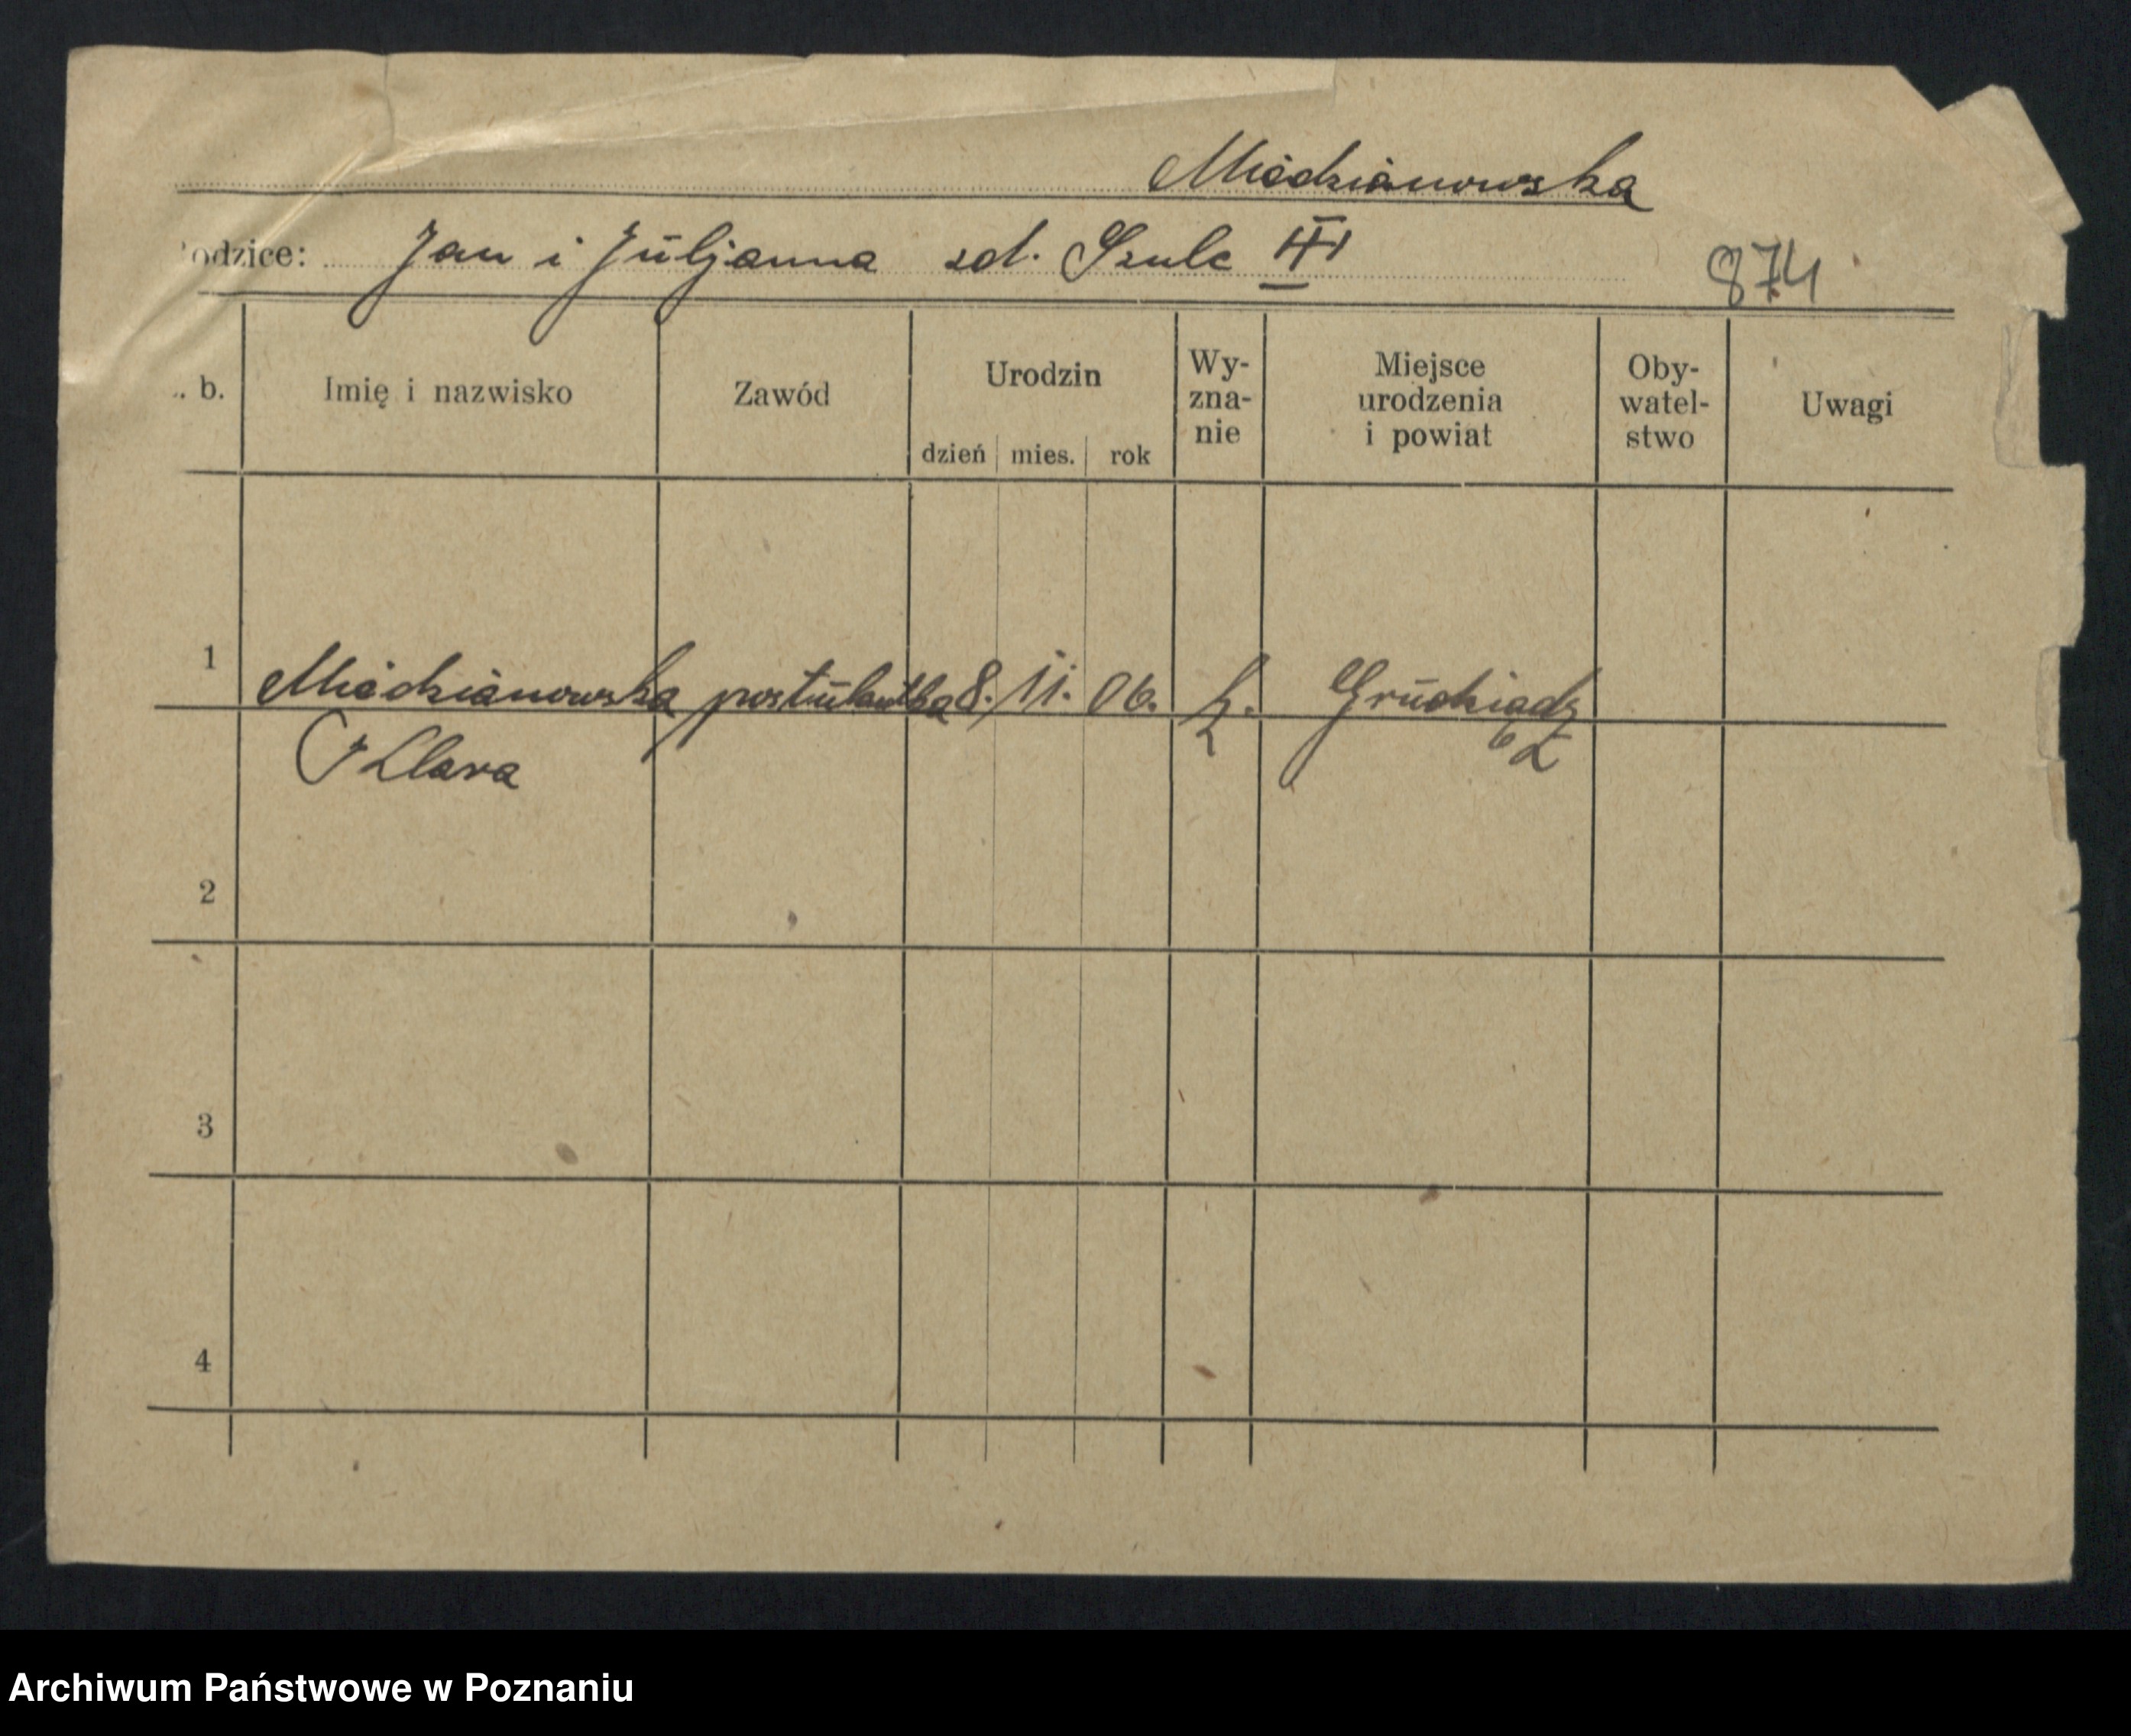 Miedzianowska
odzice: Jan i Juljanna zd. Szulc III
874
. b. Imię i nazwisko Zawód Urodzin dzień mies. rok Wy-zna-nie Miejsce urodzenia i powiat Oby-watel-stwo Uwagi
1 Miedzianowska postulantka 8. 11. 06. k. Grudziądz
Klara
2
3
4
Archiwum Państwowe w Poznaniu